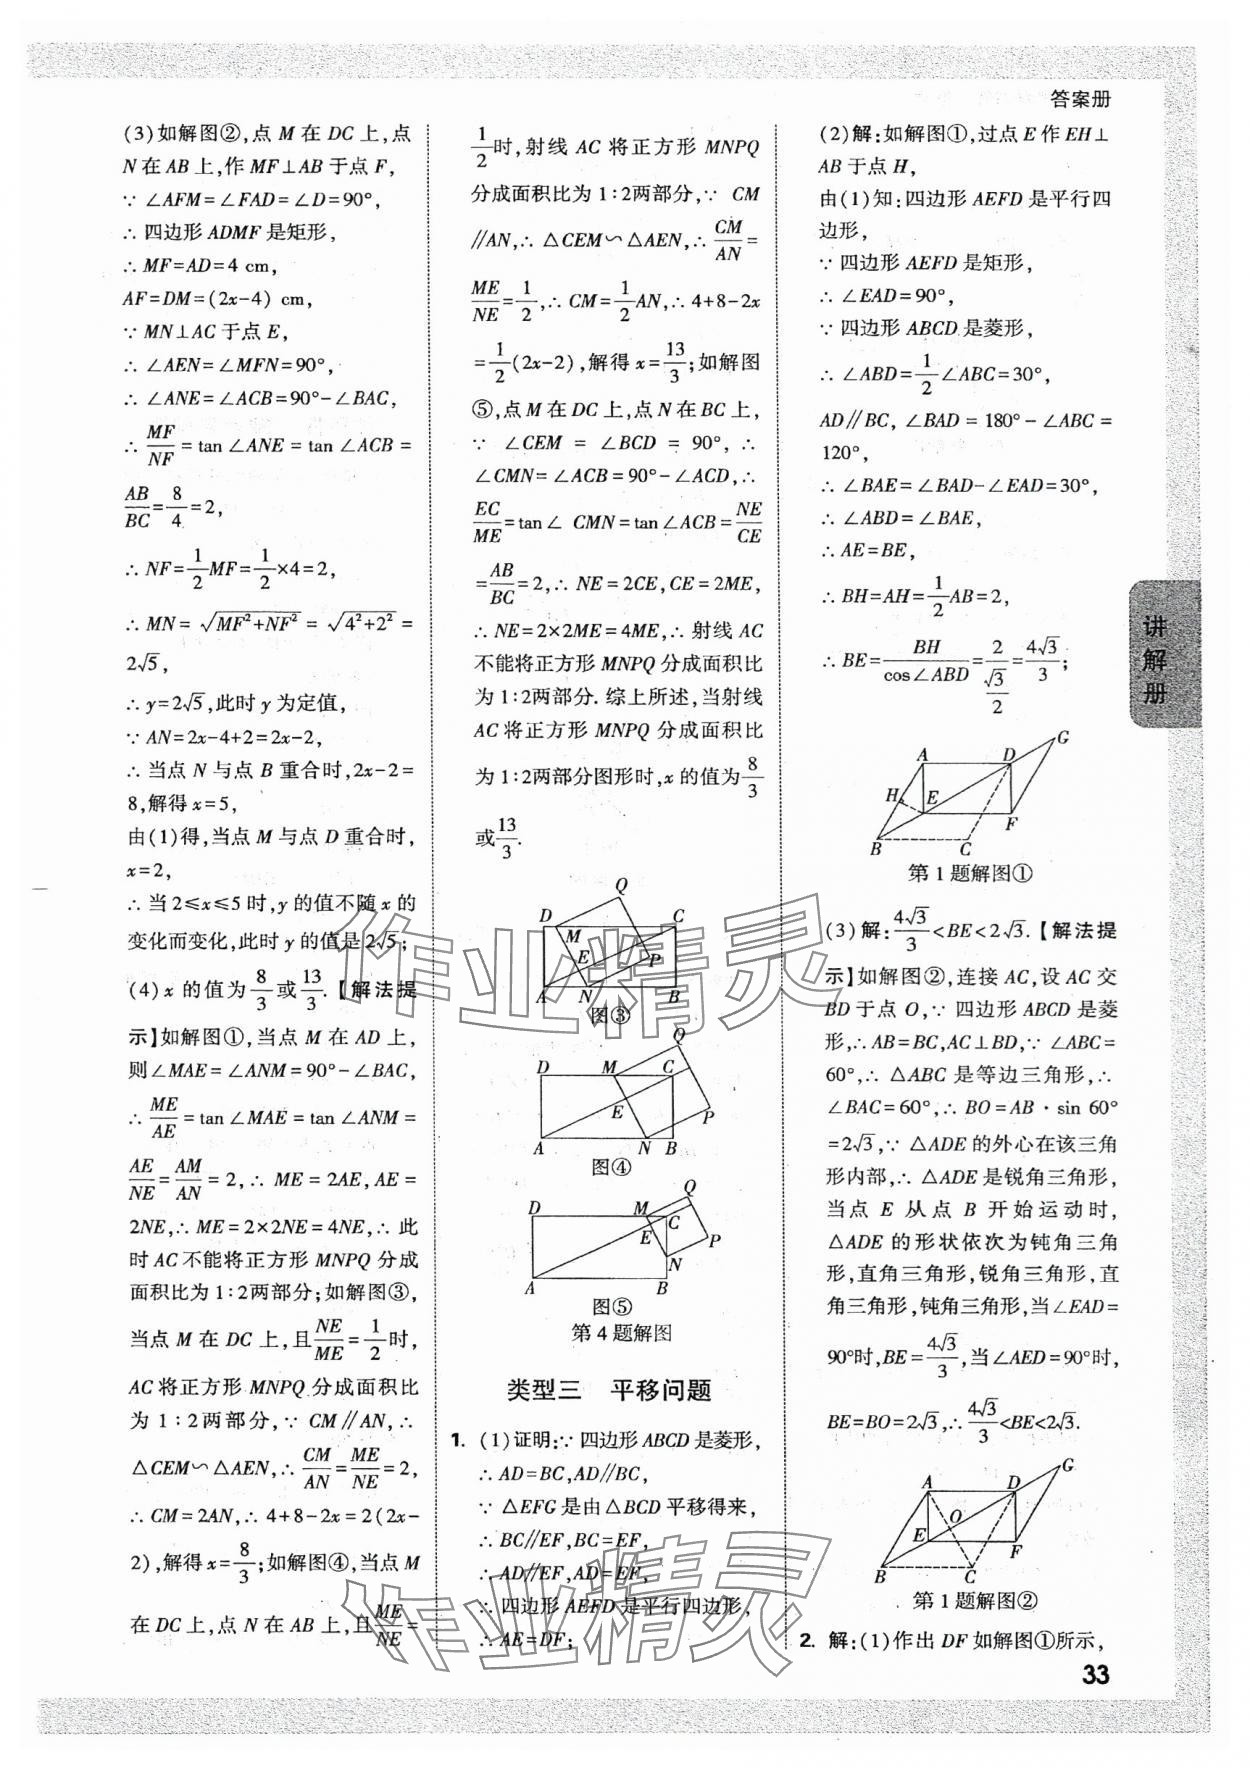 答案册
(3)如解图②,点 M 在 DC 上,点
N 在 AB 上,作 MF⊥AB 于点 F,
∵ ∠AFM=∠FAD=∠D=90°,
∴ 四边形 ADMF 是矩形,
∴ MF=AD=4 cm,
AF=DM=(2x-4) cm,
∵ MN⊥AC 于点 E,
∴ ∠AEN=∠MFN=90°,
∴ ∠ANE=∠ACB=90°-∠BAC,
∴ MF/NF = tan ∠ANE = tan ∠ACB =
AB/BC=8/4=2,
∴ NF=1/2MF=1/2×4=2,
∴ MN=√(MF²+NF²)=√(4²+2²)=
2√5,
∴ y=2√5,此时 y 为定值,
∵ AN=2x-4+2=2x-2,
∴ 当点 N 与点 B 重合时,2x-2=
8,解得 x=5,
由(1)得,当点 M 与点 D 重合时,
x=2,
∴ 当 2≤x≤5 时,y 的值不随 x 的
变化而变化,此时 y 的值是 2√5;
(4) x 的值为 8/3 或 13/3.【解法提
示】如解图①,当点 M 在 AD 上,
则∠MAE=∠ANM=90°-∠BAC,
∴ ME/AE=tan ∠MAE=tan ∠ANM=
AE/NE=AM/AN=2,∴ ME=2AE,AE=
2NE,∴ ME=2×2NE=4NE,∴ 此
时 AC 不能将正方形 MNPQ 分成
面积比为 1∶2两部分;如解图③,
当点 M 在 DC 上,且 NE/ME=1/2 时,
AC 将正方形 MNPQ 分成面积比
为 1∶2两部分,∵ CM∥AN,∴
△CEM∽△AEN,∴ CM/AN=ME/NE=2,
∴ CM=2AN,∴ 4+8-2x=2(2x-
2),解得 x=8/3;如解图④,当点 M
在 DC 上,点 N 在 AB 上,且 ME/NE=
1/2 时,射线 AC 将正方形 MNPQ
分成面积比为 1∶2两部分,∵ CM
∥AN,∴ △CEM∽△AEN,∴ CM/AN=
ME/NE=1/2,∴ CM=1/2AN,∴ 4+8-2x
=1/2(2x-2),解得 x=13/3;如解图
⑤,点 M 在 DC 上,点 N 在 BC 上,
∵ ∠CEM = ∠BCD = 90°, ∴
∠CMN=∠ACB=90°-∠ACD,∴
EC/ME=tan∠ CMN=tan∠ACB=NE/CE
=AB/BC=2,∴ NE=2CE,CE=2ME,
∴ NE=2×2ME=4ME,∴ 射线 AC
不能将正方形 MNPQ 分成面积比
为 1∶2两部分. 综上所述,当射线
AC 将正方形 MNPQ 分成面积比
为 1∶2两部分图形时,x 的值为 8/3
或 13/3.
Q
D C
M
E P
A N B
图③
Q
D M C
E
P
A N B
图④
Q
D M C
E P
N
A B
图⑤
第 4 题解图
类型三 平移问题
1. (1)证明:∵ 四边形 ABCD 是菱形,
∴ AD=BC,AD∥BC,
∵ △EFG 是由△BCD 平移得来,
∴ BC∥EF,BC=EF,
∴ AD∥EF,AD=EF,
∴ 四边形 AEFD 是平行四边形,
∴ AE=DF;
(2)解:如解图①,过点 E 作 EH⊥
AB 于点 H,
由(1)知:四边形 AEFD 是平行四
边形,
∵ 四边形 AEFD 是矩形,
∴ ∠EAD=90°,
∵ 四边形 ABCD 是菱形,
∴ ∠ABD=1/2∠ABC=30°,
AD∥BC, ∠BAD = 180° - ∠ABC =
120°,
∴ ∠BAE=∠BAD-∠EAD=30°,
∴ ∠ABD=∠BAE,
∴ AE=BE,
∴ BH=AH=1/2AB=2,
∴ BE=BH/cos∠ABD=2/(√3/2)=4√3/3;
G
A D
H E
F
B C
第 1 题解图①
(3)解:4√3/3<BE<2√3.【解法提
示】如解图②,连接 AC,设 AC 交
BD 于点 O,∵ 四边形 ABCD 是菱
形,∴ AB=BC,AC⊥BD,∵ ∠ABC=
60°,∴ △ABC 是等边三角形,∴
∠BAC=60°,∴ BO=AB·sin 60°
=2√3,∵ △ADE 的外心在该三角
形内部,∴ △ADE 是锐角三角形,
当点 E 从点 B 开始运动时,
△ADE 的形状依次为钝角三角
形,直角三角形,锐角三角形,直
角三角形,钝角三角形,当∠EAD=
90°时,BE=4√3/3,当∠AED=90°时,
BE=BO=2√3,∴ 4√3/3<BE<2√3.
G
A D
O
E
F
B C
第 1 题解图②
2. 解:(1)作出 DF 如解图①所示,
讲解册
33
作业精灵
作业精灵